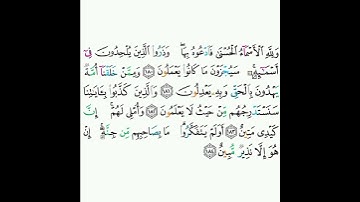 وَلِلَّهِ الْأَسْمَاءُ الْحُسْنَىٰ فَادْعُوهُ بِهَا ۖ وَذَرُوا الَّذِينَ يُلْحِدُونَ فِي
أَسْمَائِهِ ۚ سَيُجْزَوْنَ مَا كَانُوا يَعْمَلُونَ ﴿١٨٠﴾ وَمِمَّنْ خَلَقْنَا أُمَّةٌ
يَهْدُونَ بِالْحَقِّ وَبِهِ يَعْدِلُونَ ﴿١٨١﴾ وَالَّذِينَ كَذَّبُوا بِآيَاتِنَا
سَنَسْتَدْرِجُهُم مِّنْ حَيْثُ لَا يَعْلَمُونَ ﴿١٨٢﴾ وَأُمْلِي لَهُمْ ۚ إِنَّ
كَيْدِي مَتِينٌ ﴿١٨٣﴾ أَوَلَمْ يَتَفَكَّرُوا ۗ مَا بِصَاحِبِهِم مِّن جِنَّةٍ ۚ إِنْ
هُوَ إِلَّا نَذِيرٌ مُّبِينٌ ﴿١٨٤﴾